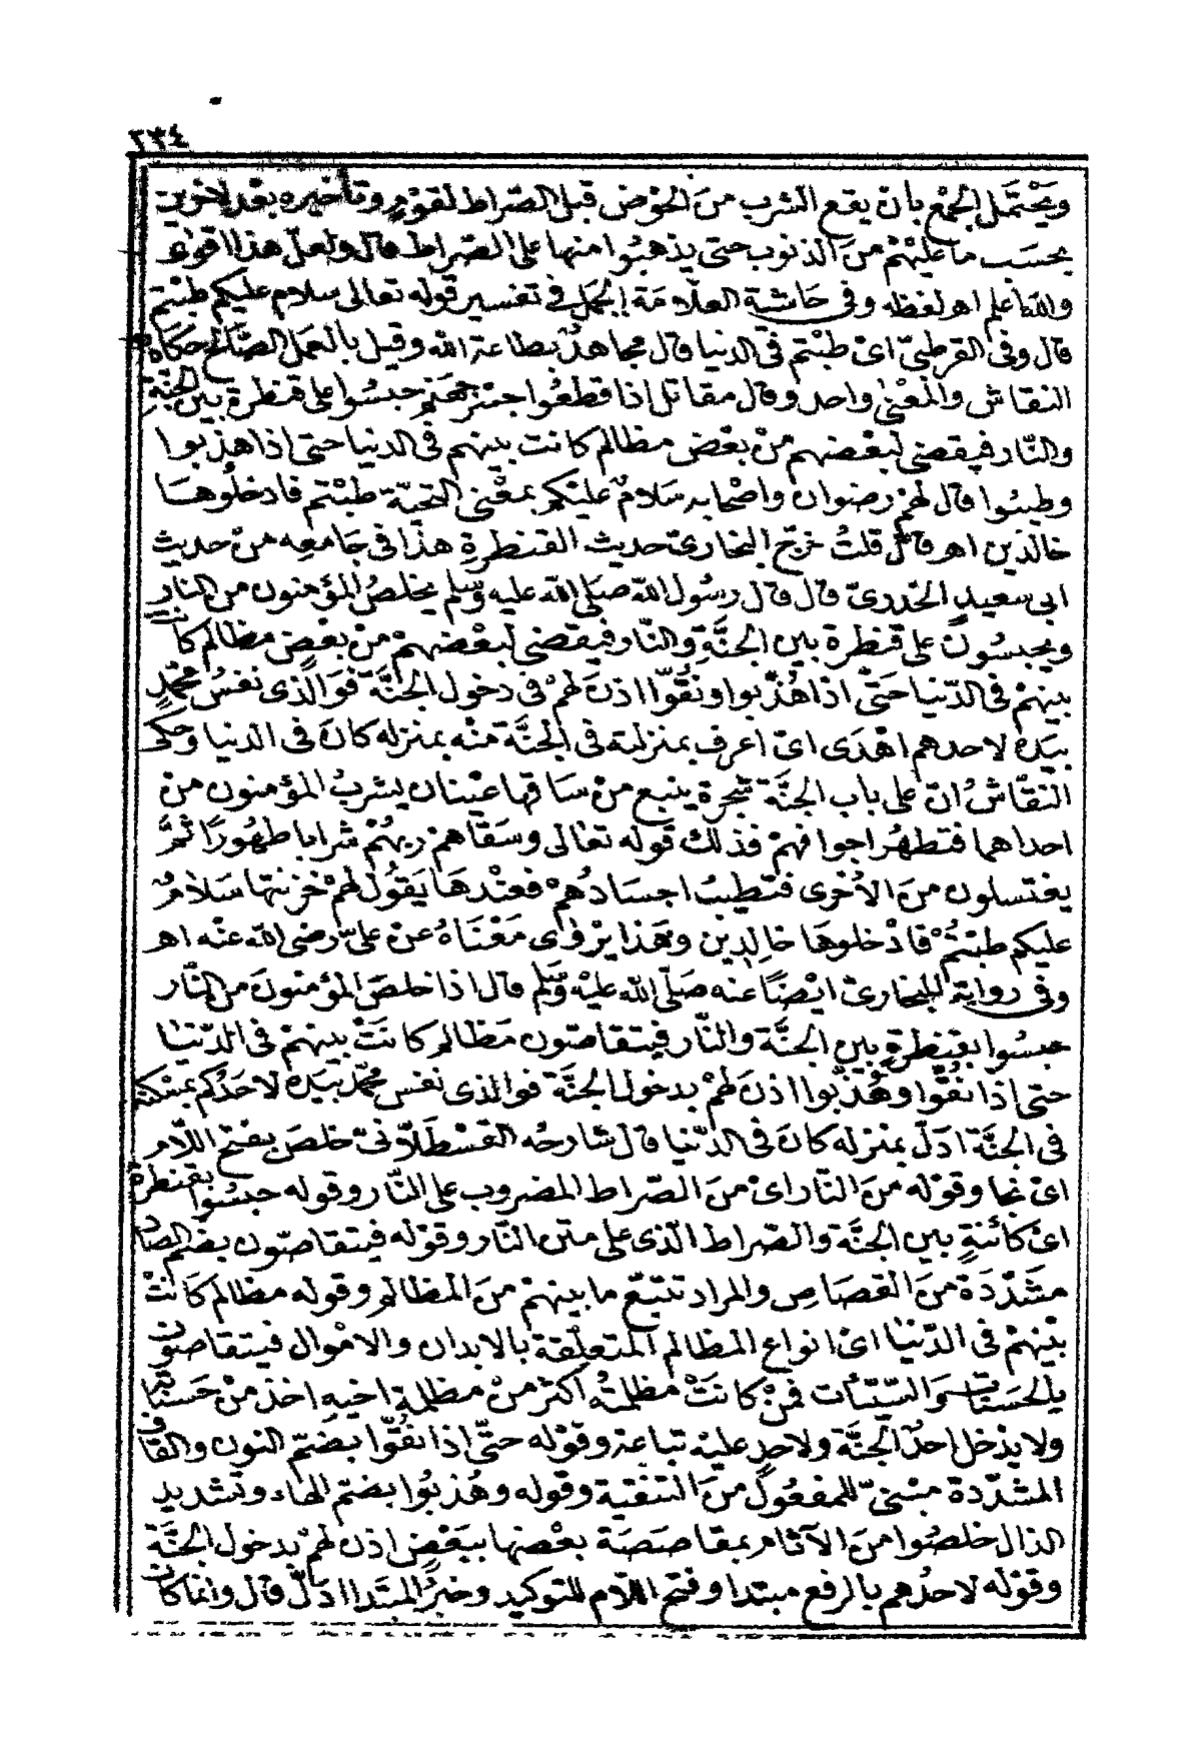 ٢٣٤
ويَحْتَمل الجمْع بأن يقع الشرب منَ الحَوْض قبل الصّراط لقوْم وتأخيره بعْد لاخرين
بحسَب ما عليْهمْ منَ الذنوب حتى يذهبُوا منها على الصّراط قال ولعل هذا اقوى
والله اعلم اهـ لفظه وفى حَاشية العلامَة الجمل في تفسير قوله تعالى سلام عليكم طبْتم
قال وفى القرطبىّ اىْ طبْتم فى الدنيا قال مجاهدٌ بطاعة الله وقيل بالعمل الصّالح حكاهُ
النقاش والمعْنى واحد وقال مقاتل اذا قطعُوا جسْر جهنم حبسُوا على قنظرة بين الجنَّةِ
والنّار فيقضى لبعْضهم منْ بعْض مظالم كانت بينهم فى الدنيا حتى اذا هذبوا
وطيبُوا قال لهمْ رضوان واصْحابه سَلامٌ عليْكم بمعْنى التحيّة طبْتم فادخلُوهَا
خالدين اهـ قال قلتُ خرّج البخارىّ حديث القنطرةِ هذا فى جَامعِه منْ حديث
ابى سعيدٍ الخدرىّ قال قال رسُول الله صَلى الله عليه وسلم يخلصُ المؤمنون من النارِ
ويحبسُونَ على قنطرة بين الجنَّةِ والنّار فيقضى لبعْضهمْ منْ بعْضٍ مظالم كانت
بينهمْ فى الدّنيا حَتّىْ اذا هُذّبوا ونُقُّوا اذنَ لهمْ فى دخول الجنَّة فوَالذى نفسُ محمّدٍ
بيَدهِ لاحدهم اهْدَى اىْ اعرف بمنزلهِ فى الجنَّة منْه بمنزله كانَ فى الدنيا وحكى
النقّاشُ انّ على باب الجنَّة شجرة ينبع منْ سَاقها عيْنان يشربُ المؤمنون منْ
احداهما فتطهُر اجوافهمْ فذلك قوله تعالى وسَقاهمْ ربهُمْ شرابا طهُورًا ثمَّ
يغتسلون منَ الأخرى فتطيبُ اجسَادُهمْ فعنْدهَا يَقُولُ لهمْ خزنتها سَلامٌ
عليكم طبْتمْ فادْخلوهَا خالِدين وهَذا يرْوى مَعْنَاهُ عنْ علىّ رضى الله عنْه اهـ
وفى رواية للبخارىّ ايْضًا عنه صَلّى الله عليْه وسَلم قال اذا خلصَ المؤمنونَ من النّار
حبسُوا بقنِطرةٍ بين الجنَّة والنّار فيتقاصّون مَظالم كانَتْ بينهمْ فى الدّنيا
حتى اذا نُقُّوا وهُذّبوا اذنَ لهمْ بدخول الجنَّة فوالذى نفس محمّد بيَده لاحَدُكم بمسْكنه
فى الجنَّة ادَلّ بمنزله كانَ فى الدّنيا قال شارحُه القسْطَلّانىّ خلصَ بفتح اللّام
اىْ نجا وقوْله منَ النّار اىْ منَ الصّراط المضروب على النّار وقوله حبسُوا بقنطرة
اىْ كائنةٍ بين الجنَّة والصّراط الذى على متن النّار وقوْله فيتقاصّون بضم الصّاد
مشَدّدَة منَ القصَاصِ والمراد تتبّع ما بينهمْ منَ المظالم وقوله مظالم كَانتْ
بيْنهمْ فى الدّنيا اىْ انواع المظالم المتعلّقة بالابدان والامْوال فيتقاصّون
بالحسَنات وَالسّيّئات فمَنْ كانَتْ مظلمتُه اكثر منْ مظلمةِ اخيهِ اخذ منْ حَسناته
ولا يدْخل احدٌ الجنَّة ولاحدٍ عليْه تباعة وقوْله حتَّى اذا نُقُّوا بضمّ النون والقاف
المشدّدة مبْنىّ للمفعُول منَ التنقية وقوله وهُذبُوا بضمّ الهاء وتشديد
الذال خلصُوا منَ الآثام بمقاصَصَة بعْضها ببَعْضٍ اذن لهمْ بدخول الجنَّة
وقوْله لاحدُهم بالرفع مبتدا وفتح اللّام للتوكيد وخبرُ المبتَدا ادَلّ قال وانما كان